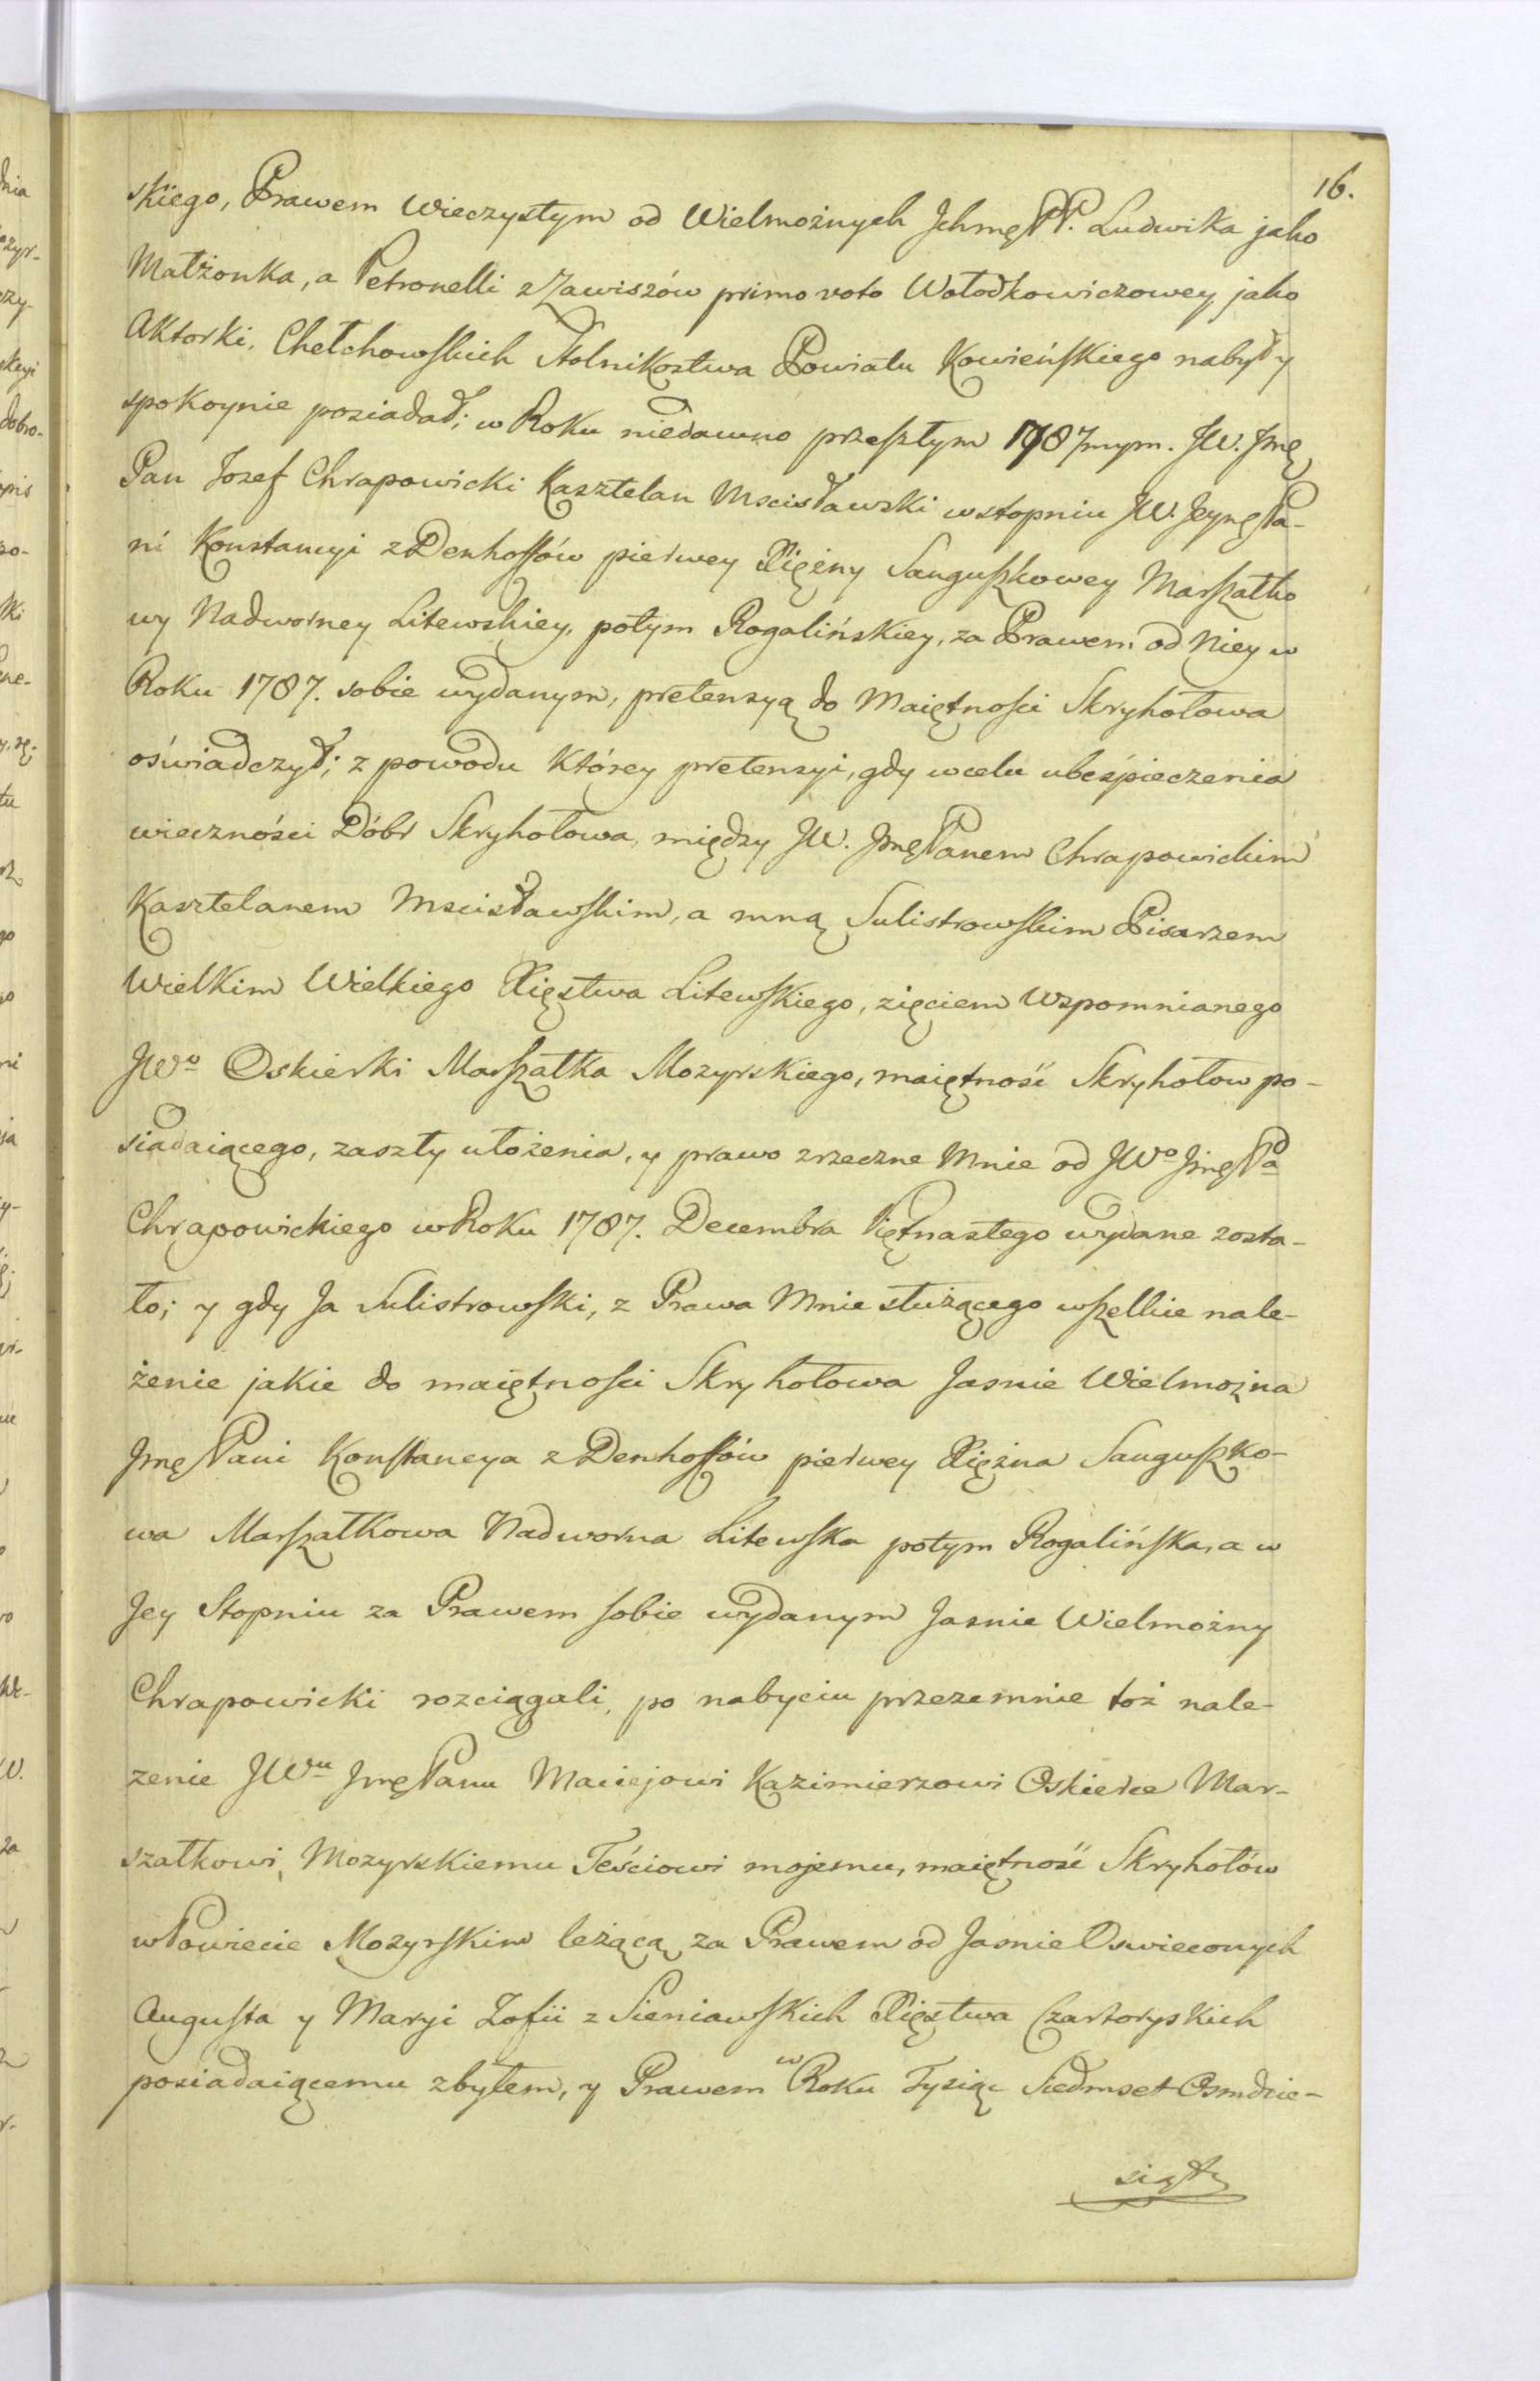 16.
skiego, Prawem Wieczystym od Wielmożnych Jchmę PP. Ludwika jako
Małżonka, a Petronelli z Zawiszów primo voto Wołodkowiczowey jako
Aktorki, Chełchowskich Stolnikostwa Powiatu Kowieńskiego nabył y
spokoynie posiadał; w Roku niedawno przeszłym 1787mym. JW. Jmę
Pan Jozef Chrapowicki Kasztelan Mscisławski w stopniu JW. Jeymę Pa-
ni Konstancyi z Denhoffów pierwey Xiężny Sanguszkowey Marszałko
wy Nadworney Litewskiey, potym Rogalińskiey, za Prawem od Niey w
Roku 1787. sobie wydanym, pretensyą do Maiętności Skryhołowa
oświadczył; z powodu Którey pretensyi, gdy w celu ubeśpieczenia
wieczności Dóbr Skryhołowa, między JW. Jmę Panem Chrapowickim
Kasztelanem Mscisławskim, a mną Sulistrowskim Pisarzem
Wielkim Wielkiego Xięstwa Litewskiego, zięciem Wspomnianego
JWo Oskierki Marszałka Mozyrskiego, maiętność Skryhołow po-
siadaiącego, zaszły ułożenia, y prawo zrzeczne Mnie od JWo Jmę Pa
Chrapowickiego w Roku 1787. Decembra Piętnastego wydane zosta-
ło; y gdy Ja Sulistrowski, z Prawa Mnie służącego wszelkie nale-
żenie jakie do maiętności Skryhołowa Jasnie Wielmożna
Jmę Pani Konstancya z Denhoffów pierwey Xiężna Sanguszko-
wa Marszałkowa Nadworna Litewska potym Rogalińska, a w
Jey Stopniu za Prawem sobie wydanym Jasnie Wielmożny
Chrapowicki rozciągali, po nabyciu przezemnie toż nale-
zenie JWu Jmę Panu Maciejowi Kazimierzowi Oskierce Mar-
szałkowi Mozyrskiemu Teściowi mojemu, maiętność Skryhołów
w Powiecie Mozyrskim leżącą za Prawem od Jasnie Oswieconych
Augusta y Maryi Zofii z Sieniawskich Xięstwa Czartoryskich
posiadaiącemu zbyłem, y Prawem w Roku Tysiąc Siedmset Osmdzie-
siąty